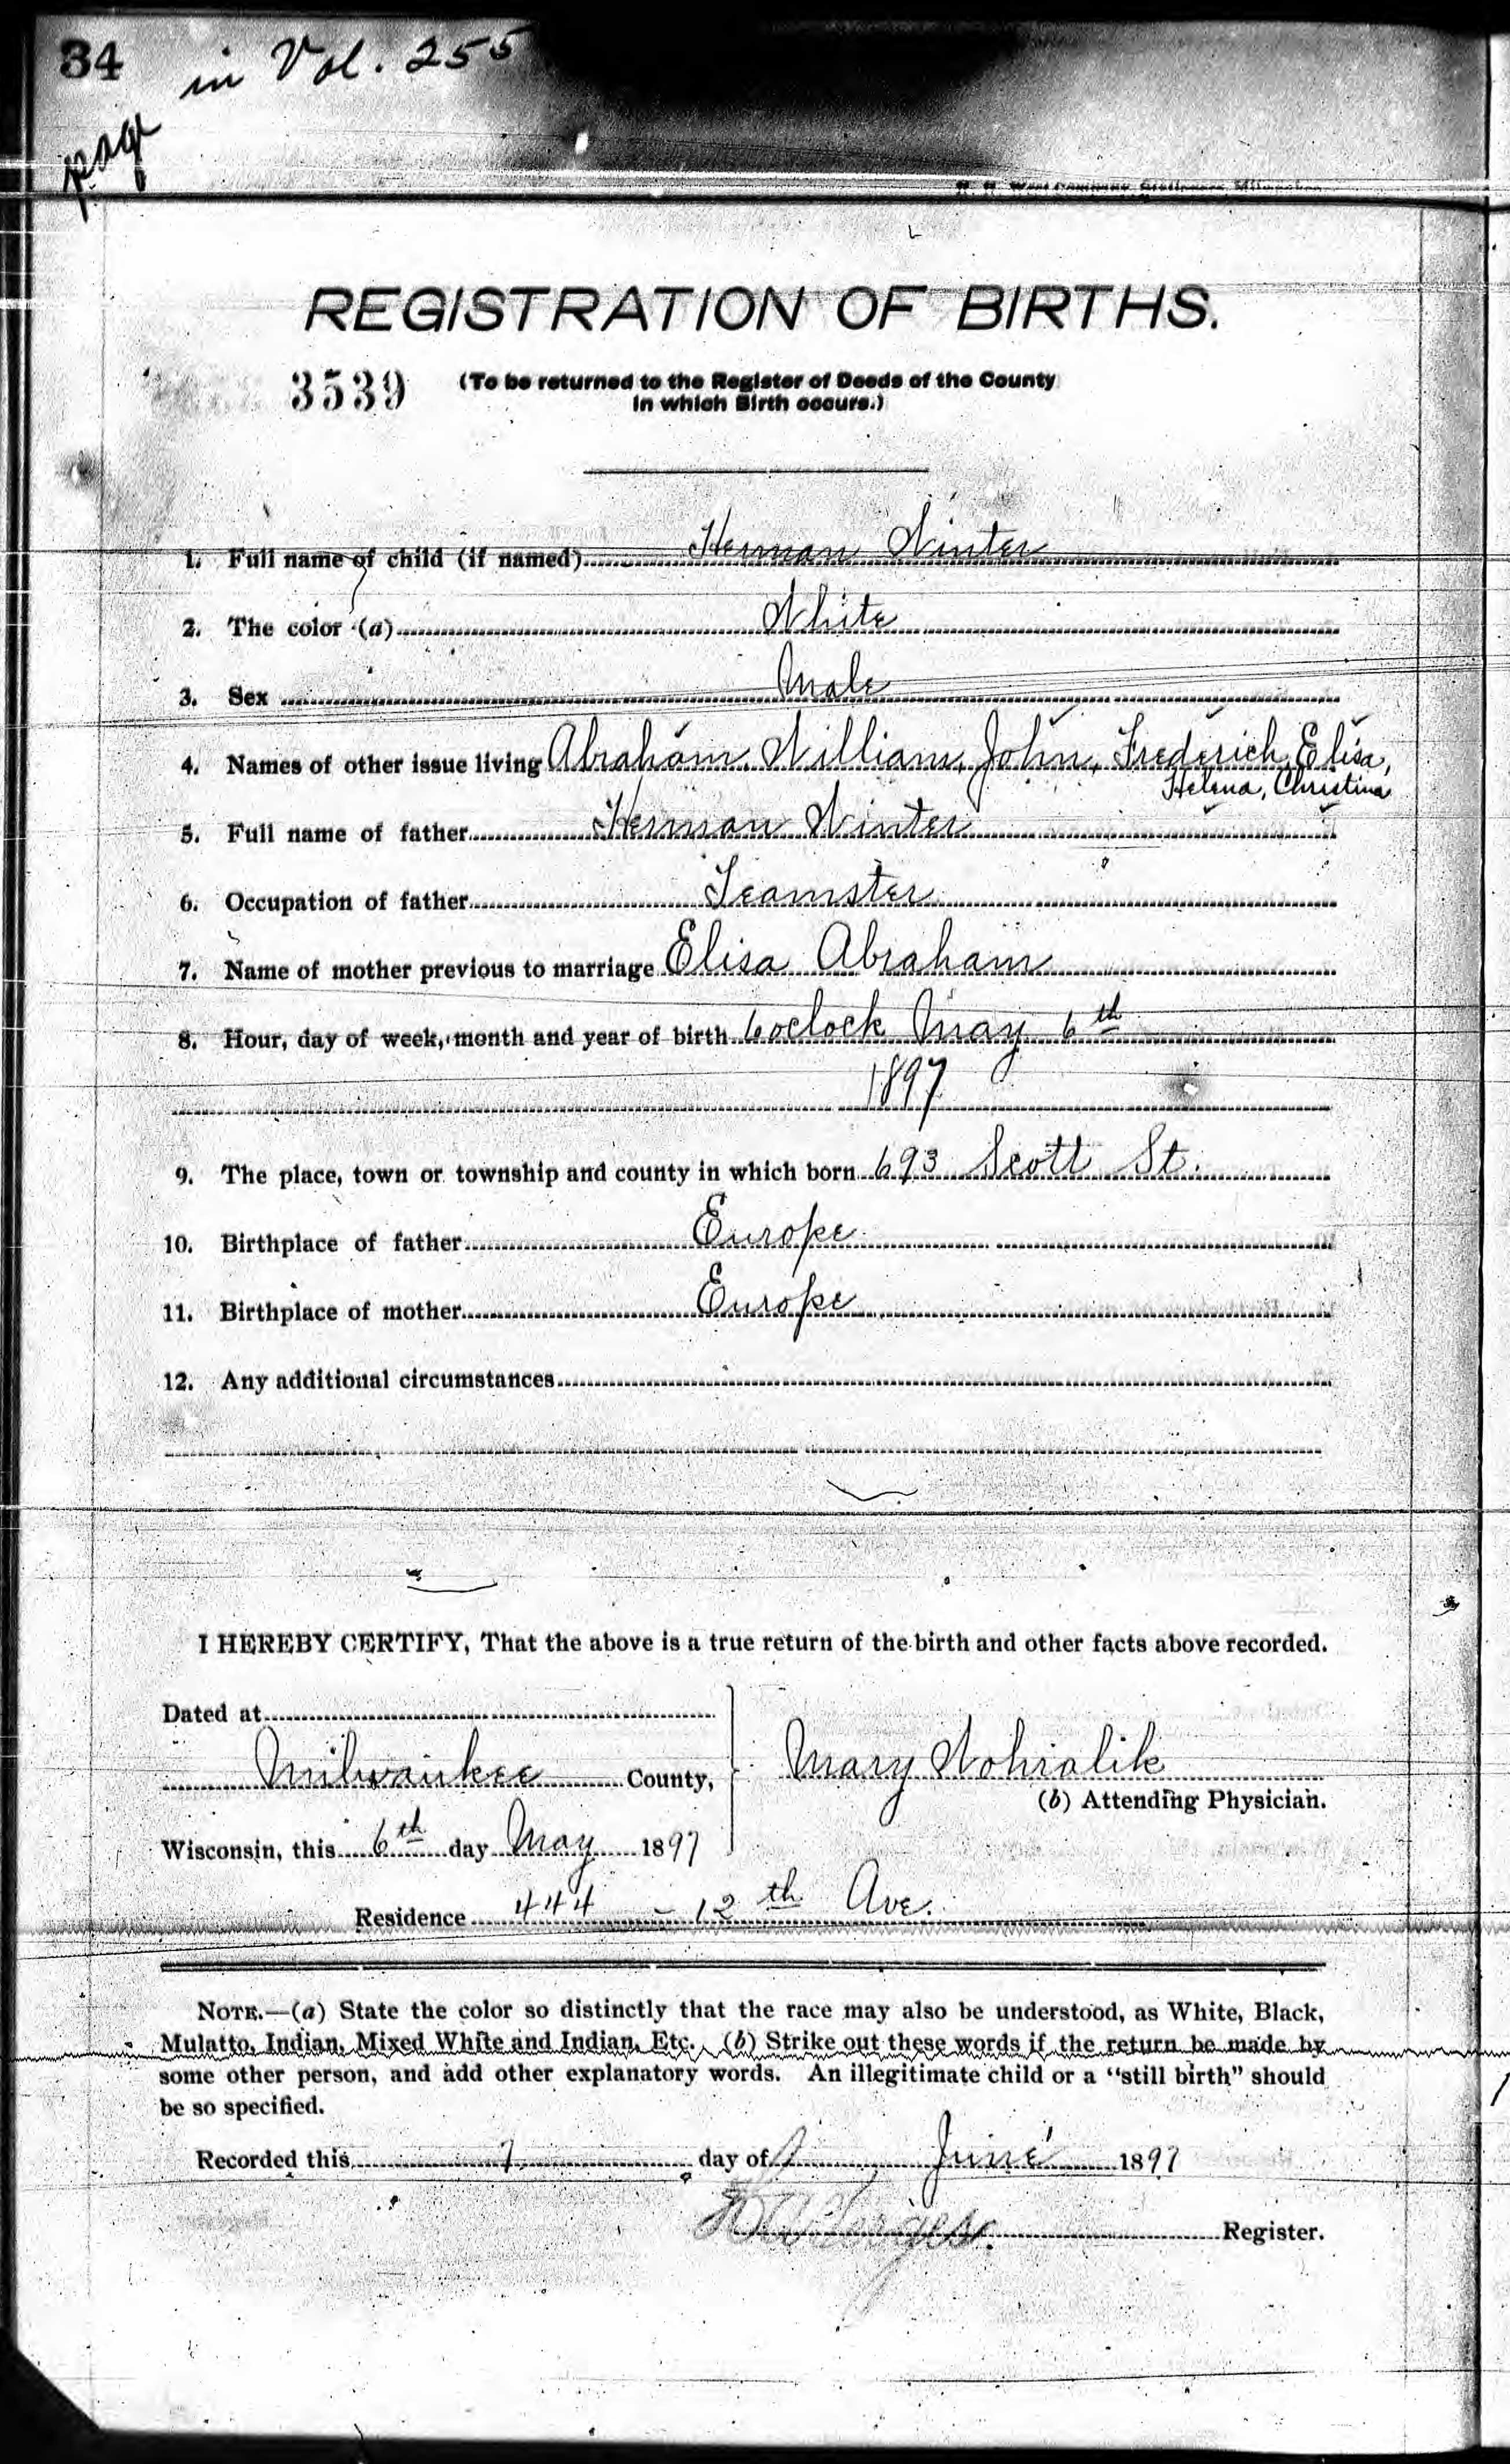 34
in Vol. 255
page
REGISTRATION OF BIRTHS.
3539 (To be returned to the Register of Deeds of the County
in which Birth occurs.)
1. Full name of child (if named) Herman Winter
2. The color (a) White
3. Sex Male
4. Names of other issue living Abraham, William, John, Frederich, Elisa,
Helena, Christina
5. Full name of father Herman Winter
6. Occupation of father Teamster
7. Name of mother previous to marriage Elisa Abraham
8. Hour, day of week, month and year of birth 6 oclock May 6th
1897
9. The place, town or township and county in which born 693 Scott St.
10. Birthplace of father Europe
11. Birthplace of mother Europe
12. Any additional circumstances
I HEREBY CERTIFY, That the above is a true return of the birth and other facts above recorded.
Dated at
Milwaukee County,
Mary
(b) Attending Physician.
Wisconsin, this 6th day May 1897
Residence 444 - 12th Ave.
NOTE.—(a) State the color so distinctly that the race may also be understood, as White, Black,
Mulatto, Indian, Mixed White and Indian, Etc. (b) Strike out these words if the return be made by
some other person, and add other explanatory words. An illegitimate child or a "still birth" should
be so specified.
Recorded this 7 day of June 1897
Register.